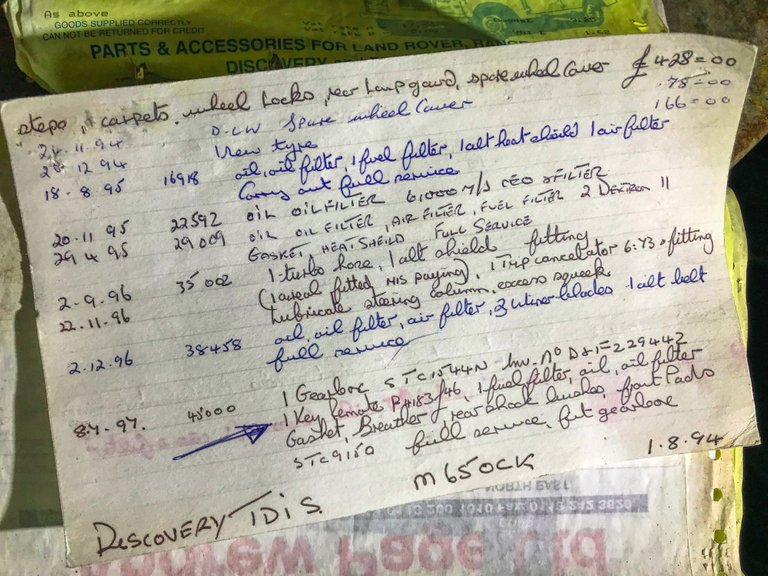 As above
GOODS SUPPLIED CORRECTLY
CAN NOT BE RETURNED FOR CREDIT
PARTS & ACCESSORIES FOR LAND ROVER, RANGE
DISCOVERY
steps, carpets, wheel locks, rear lamp gaurd, spare wheel Cover £428=00
21.11.94 D-LW Spare wheel Cover 78=00
20.12.94 New tyre 166=00
18.8.95 16918 oil, oil filter, 1 fuel filter, 1 alt heat shield 1 air filter
Carry out full service
20.11.95 22592 OIL OIL FILTER 6,000 M/S
29.4.95 29009 OIL OIL FILTER, AIR FILTER, FUEL FILTER 2 DEXTRON II
GASKET HEAT SHEILD FULL SERVICE
2.9.96 35002 1 turbo hose, 1 alt shield fitting
(1 areal fitted NIS paying), 1 Trip cancelator 6.73 + fitting
22.11.96 Lubricate steering column, excess squeek
2.12.96 38458 oil, oil filter, air filter, 2 wiper blades 1 alt belt
full service
8.7.97. 45000 1 Gearbox STC1544N Inv. No 229442
1 Key female R4183/46, 1 fuel filter, oil, oil filter
Gasket, Breather, rear shock bushes, front Pads
STC9150 full service, fit gearbox
DISCOVERY TDIS M650CK 1.8.94
NORTH EAST